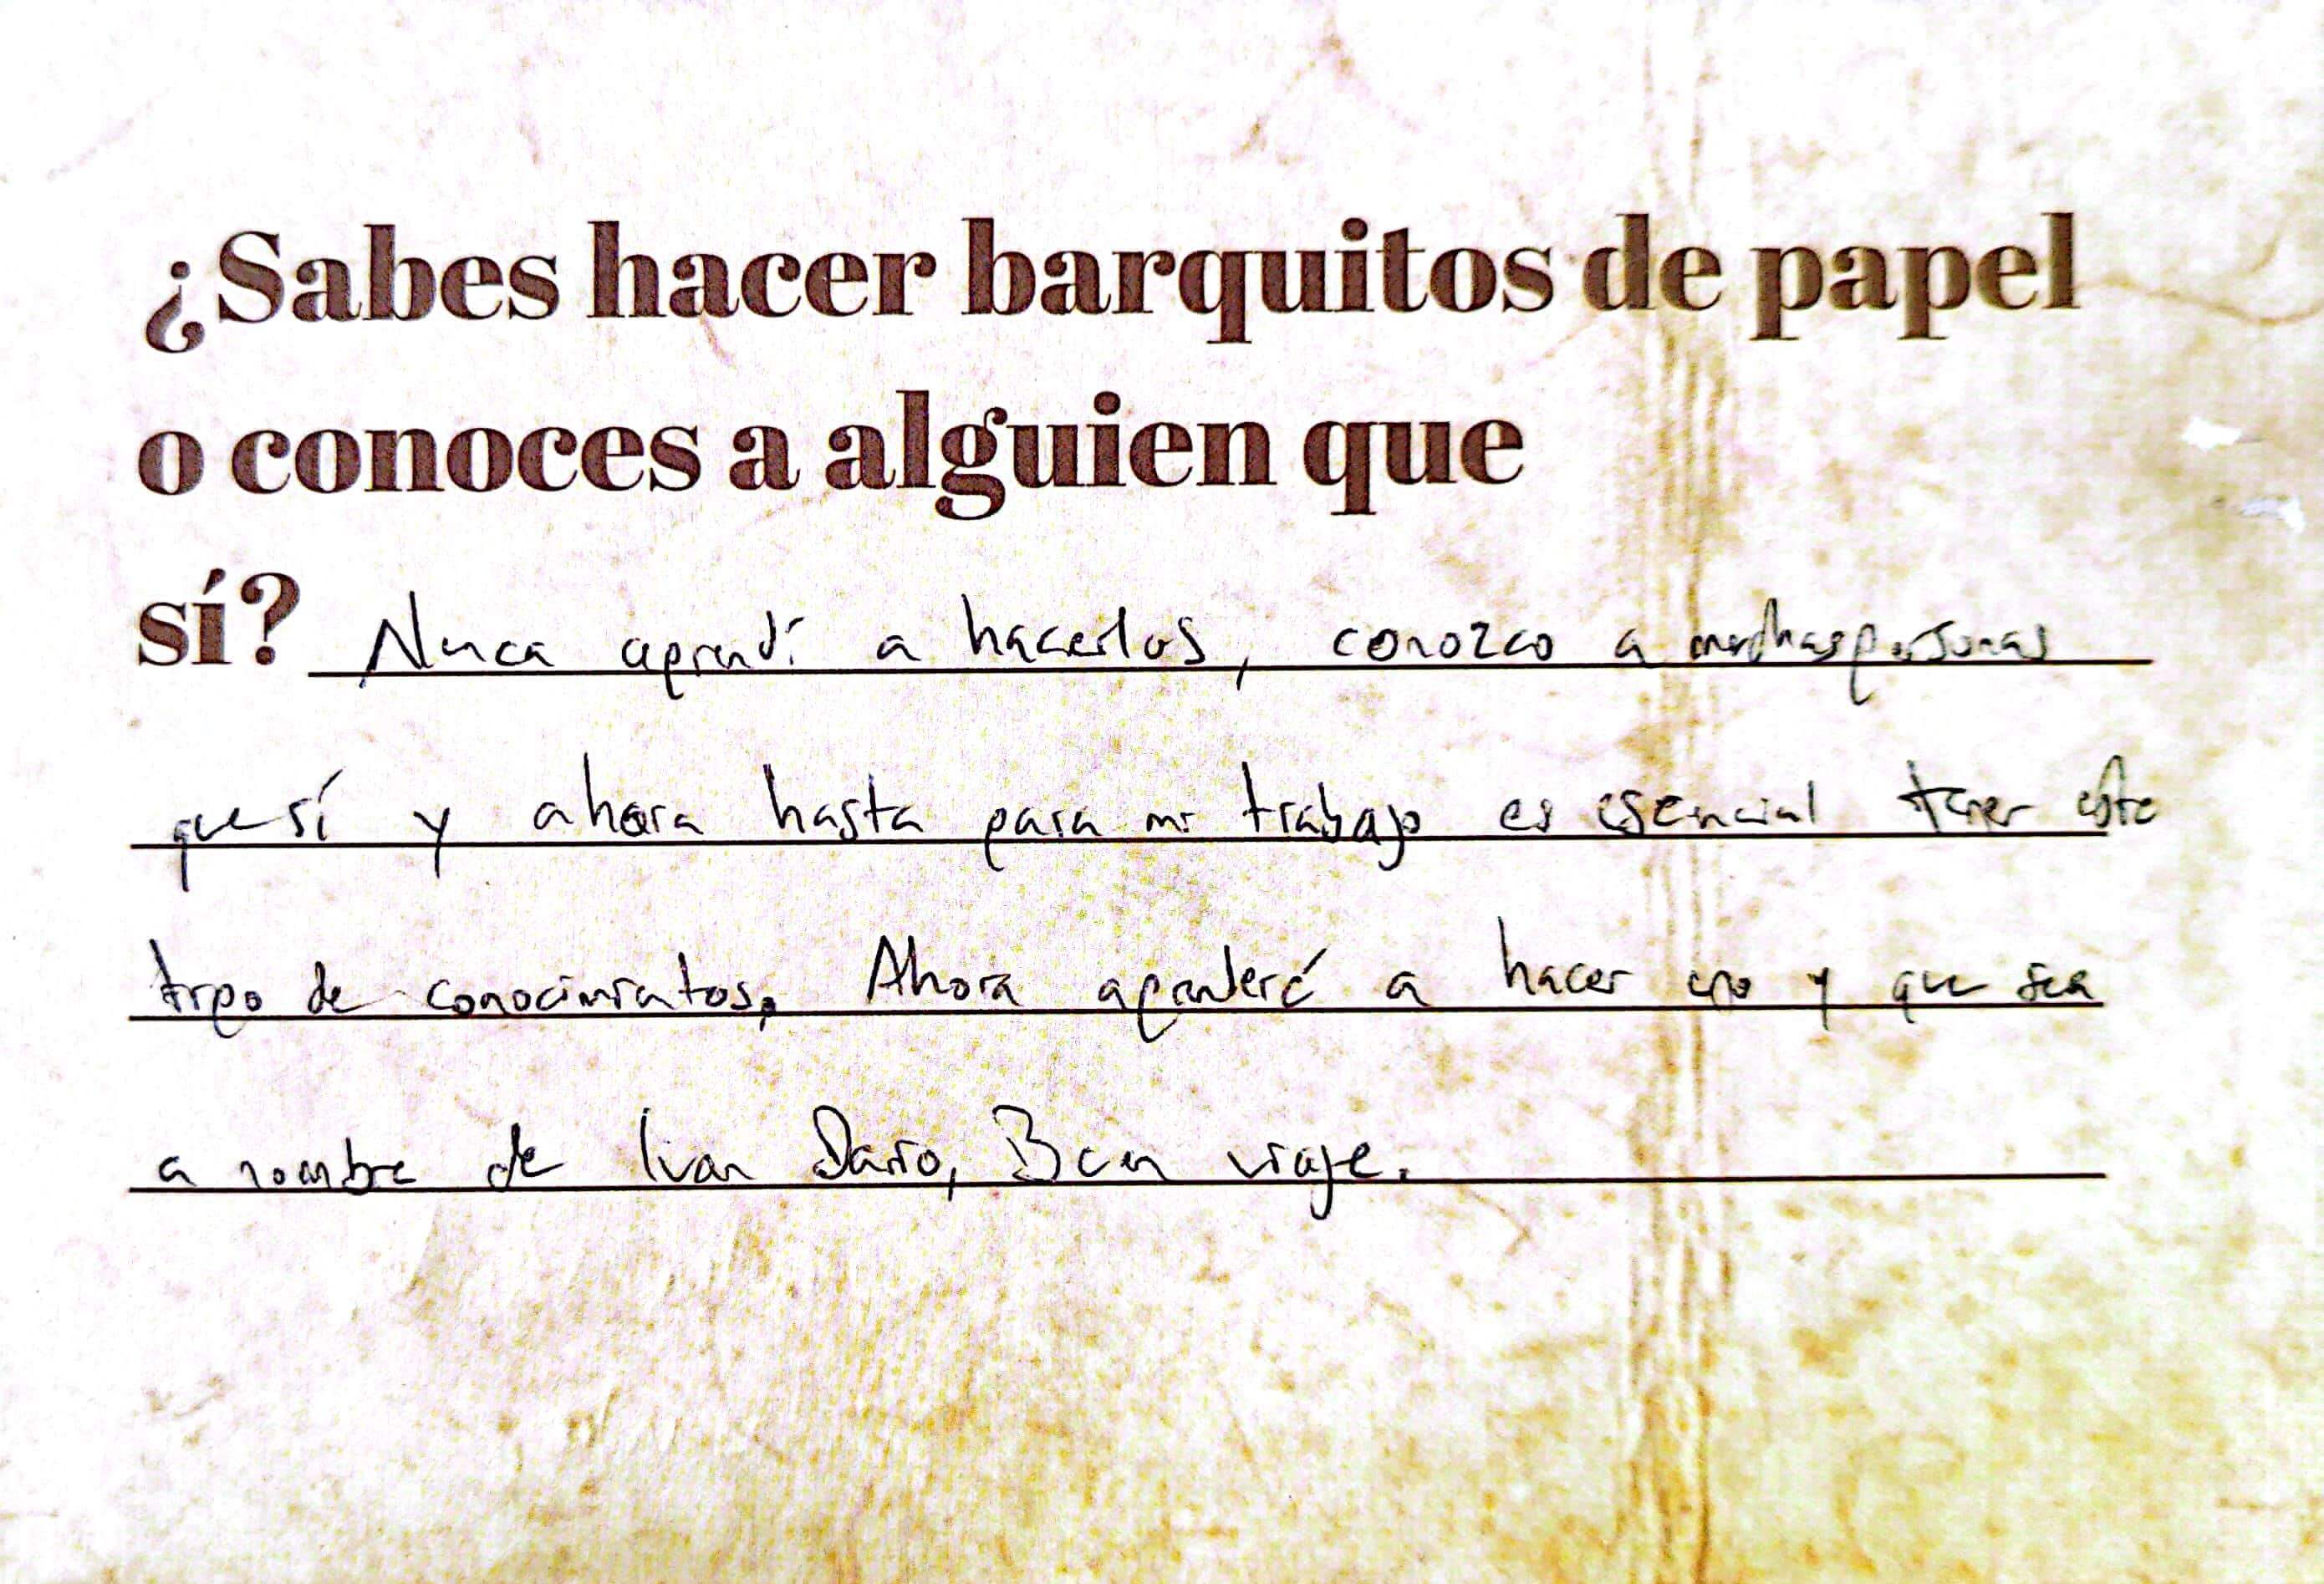 ¿Sabes hacer barquitos de papel
o conoces a alguien que
sí? Nunca aprendí a hacerlos, conozco a muchas personas
que sí y ahora hasta para mi trabajo es esencial tener este
tipo de conocimientos. Ahora aprenderé a hacer uno y que sea
a nombre de Ivan Dario, Buen viaje.